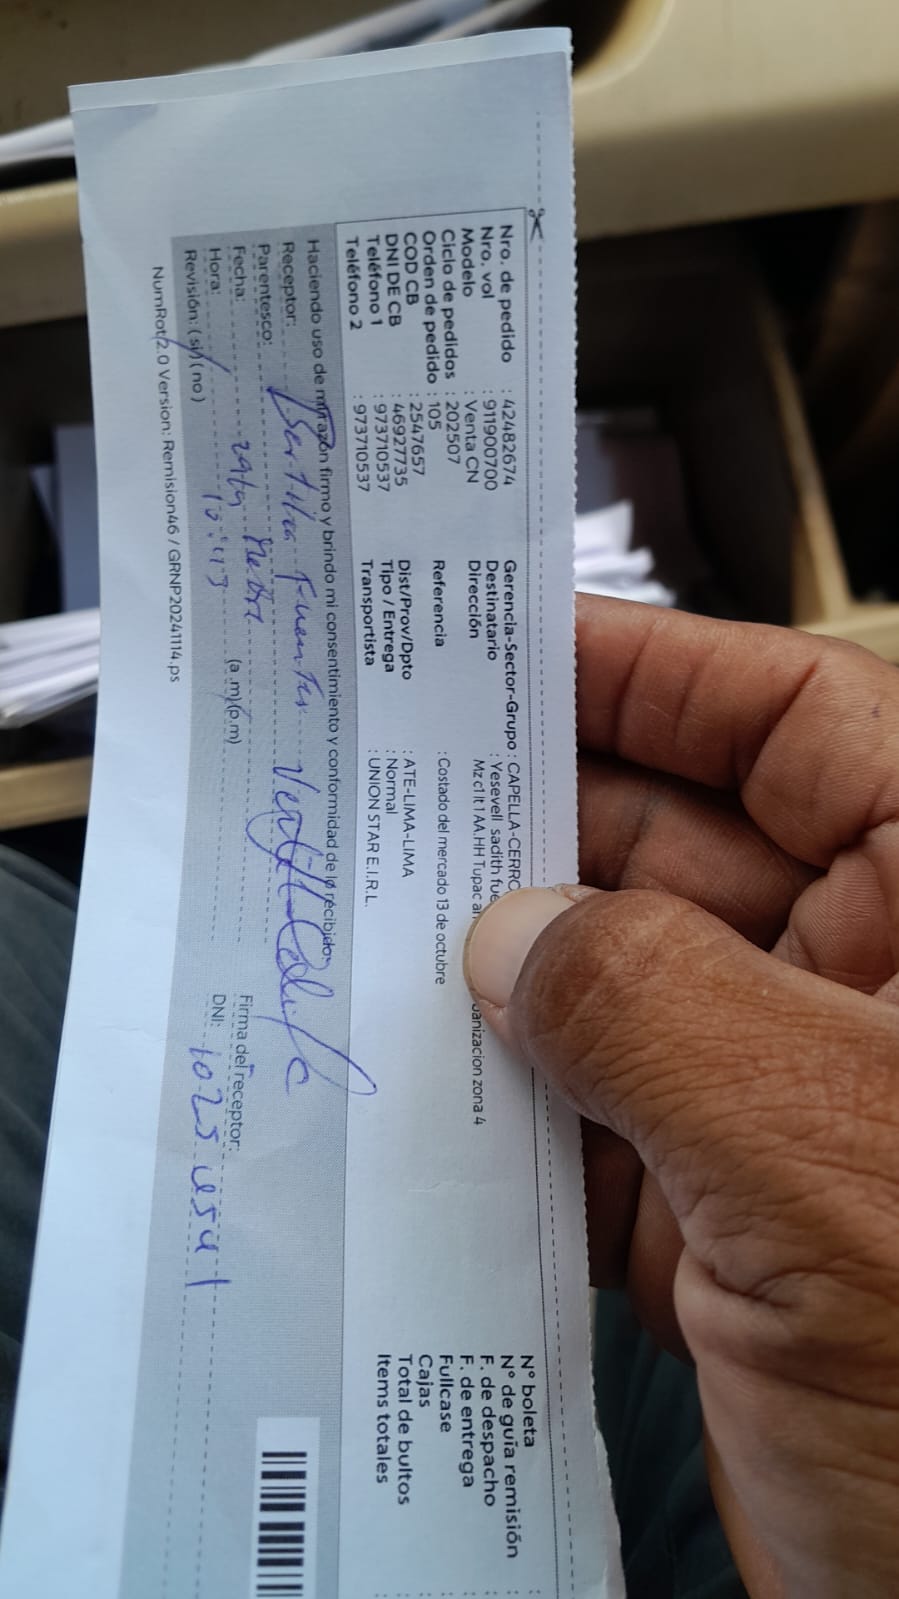 Nro. de pedido : 42482674
Nro. vol : 911900700
Modelo : Venta CN
Ciclo de pedidos : 202507
Orden de pedido : 105
COD CB : 2547657
DNI DE CB : 46927735
Teléfono 1 : 973710537
Teléfono 2 : 973710537
Gerencia-Sector-Grupo : CAPELLA-CERRO
Destinatario : Yesevell sadith fue
Dirección : Mz c1 lt 1 AA.HH Tupac a
banizacion zona 4
Referencia : Costado del mercado 13 de octubre
Dist/Prov/Dpto : ATE-LIMA-LIMA
Tipo / Entrega : Normal
Transportista : UNION STAR E.I.R.L.
N° boleta :
N° de guía remisión :
F. de despacho :
F. de entrega :
Fullcase :
Cajas :
Total de bultos :
Items totales :
Haciendo uso de mi razón firmo y brindo mi consentimiento y conformidad de lo recibido:
Receptor: Fuentes
Parentesco:
Fecha:
Hora: 10:43 (a.m)(p.m)
Firma del receptor:
DNI: 1025
Revisión: (si) (no)
NumRot2.0 Version: Remision46 / GRNP20241114.ps